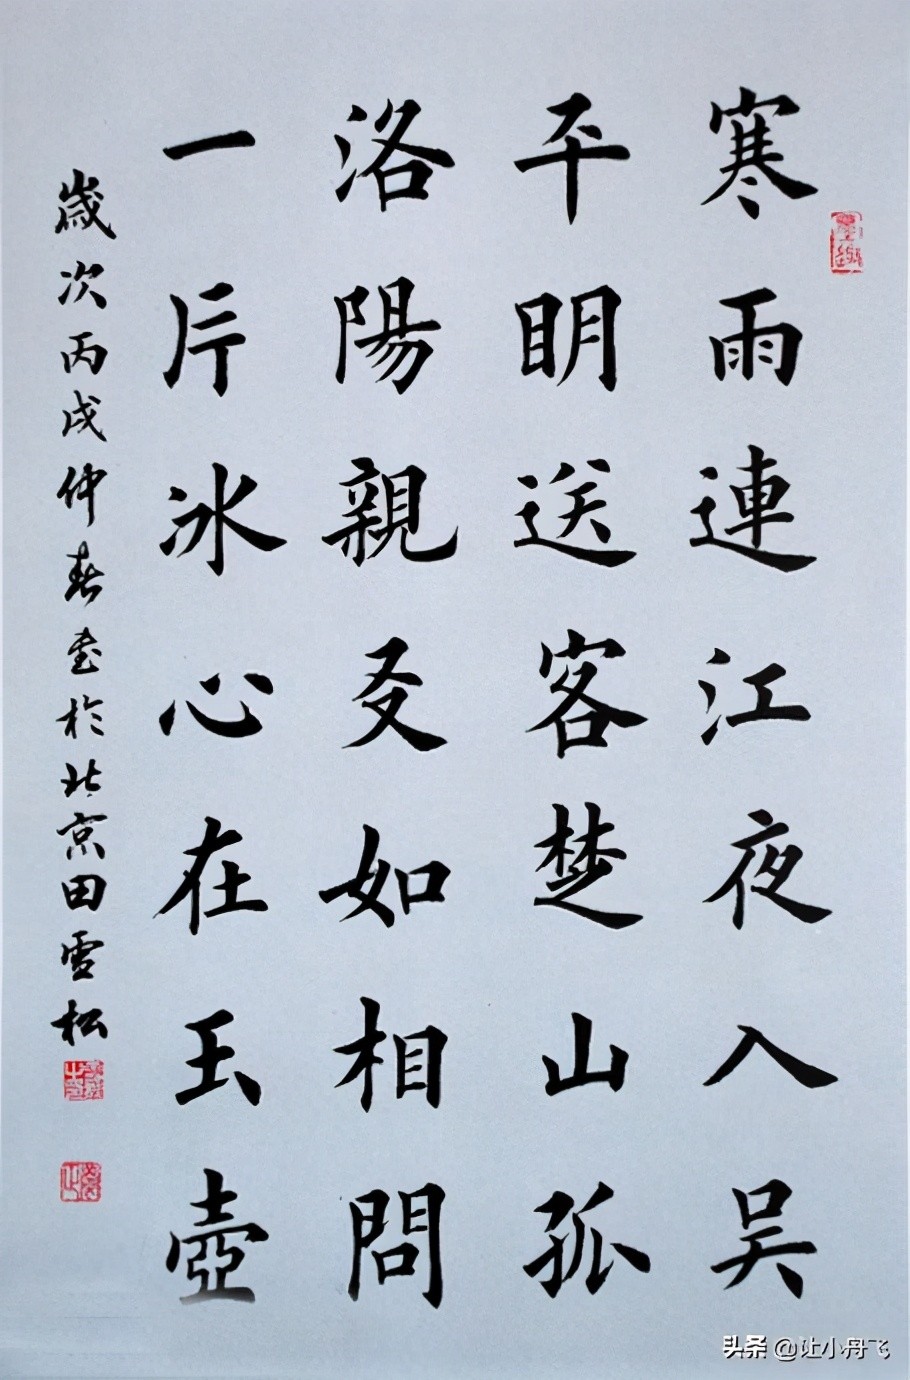 寒雨連江夜入吴
平明送客楚山孤
洛陽親友如相問
一片冰心在玉壺
歲次丙戌仲春書於北京田雪松
头条 @让小舟飞